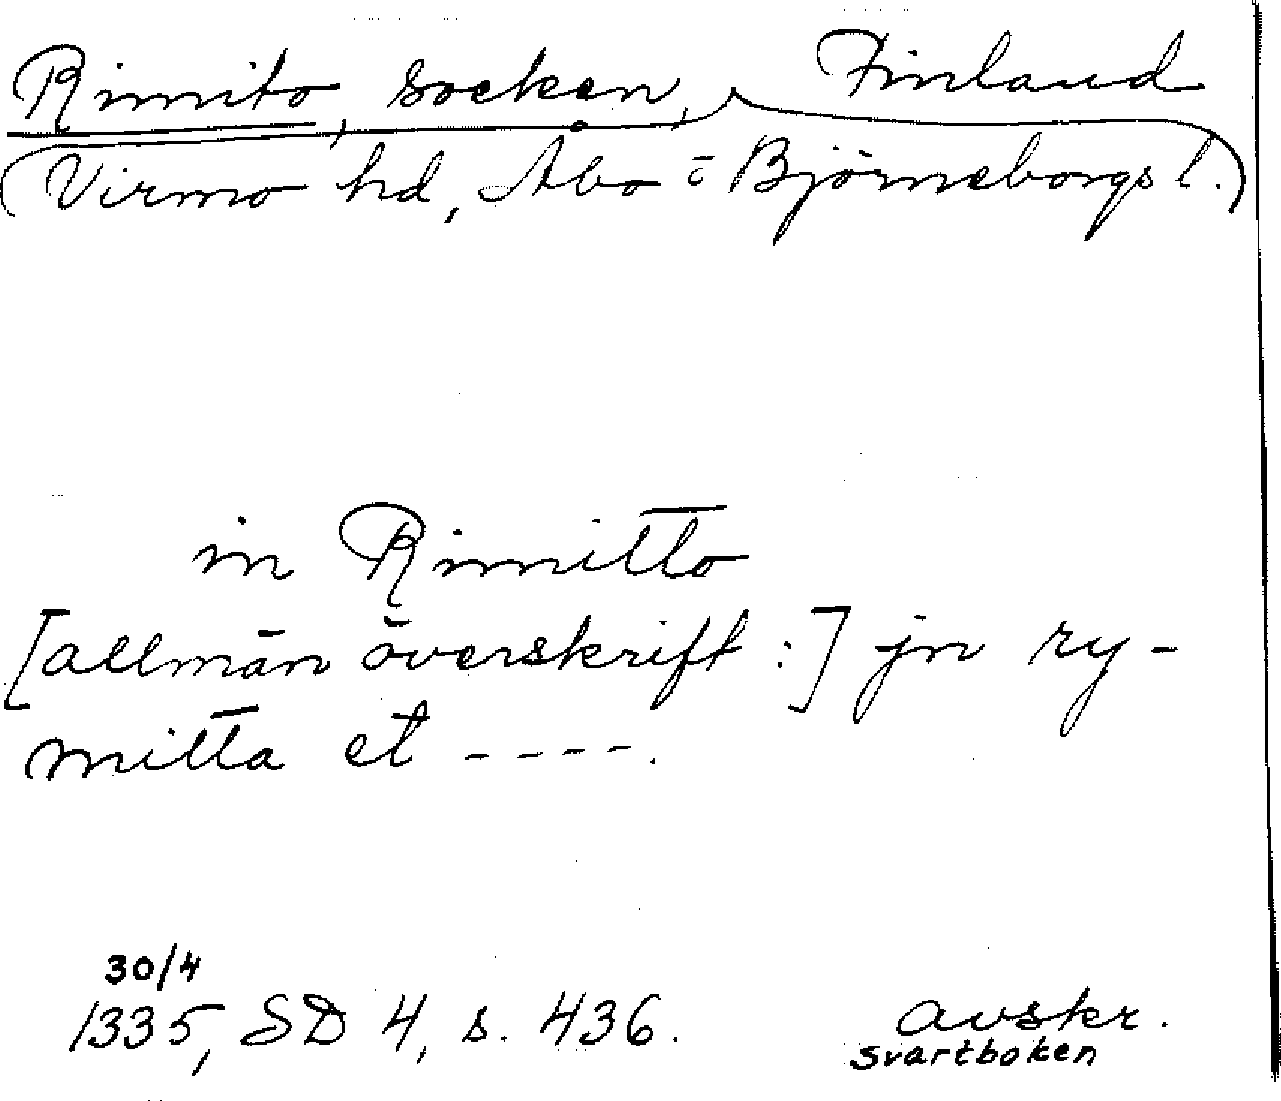 Rimito, socken, Finland
(Virmo hd, Åbo = Björneborgs l.)
in Rimitto
[allmän överskrift:] jn ry-
mitta et ----.
30/4
1335, SD 4, s. 436. avskr.
svartboken